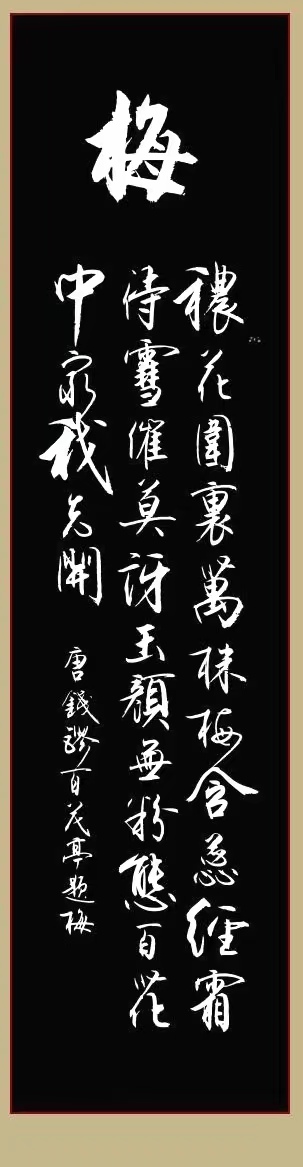 梅
穠花圍裏萬株梅含蕊經霜
待雪催莫訝玉顏無粉態百花
中最我先開
唐錢鏐百花亭題梅